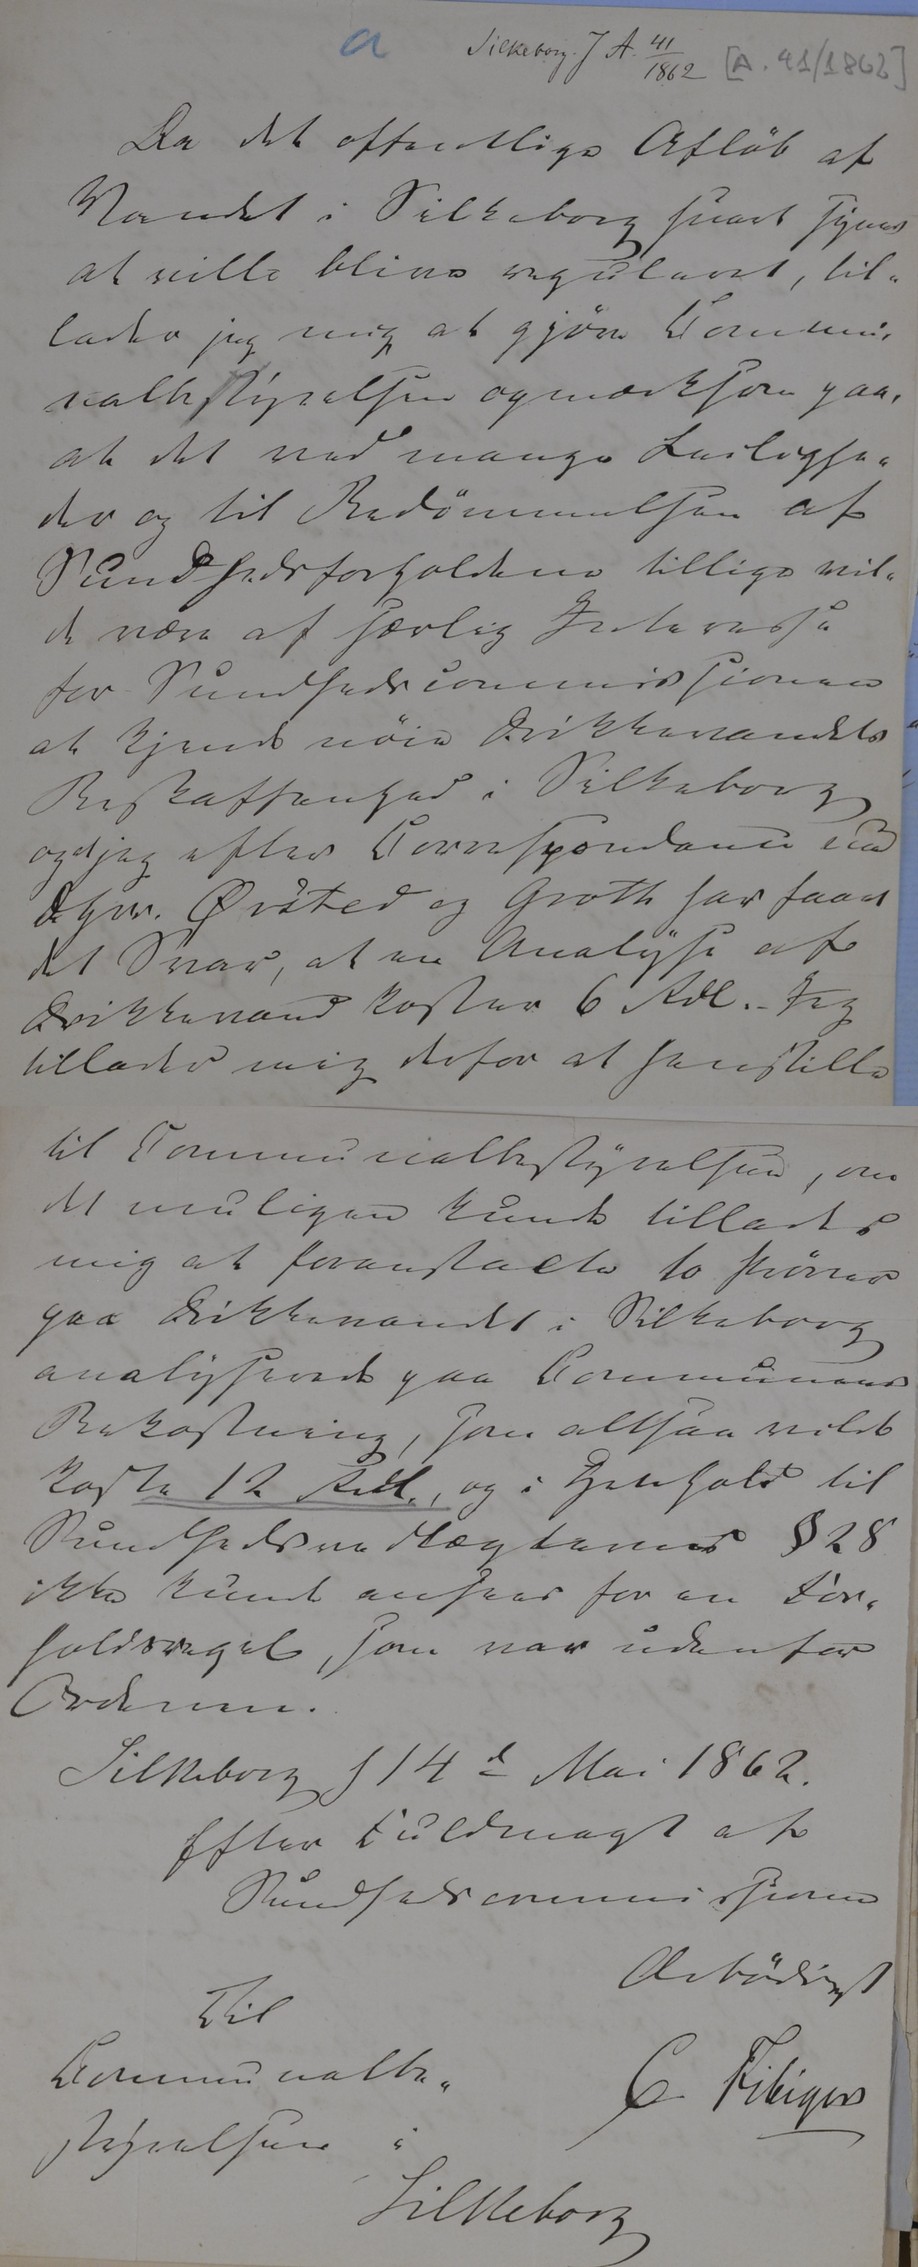 a
Silkeborg J A. 41/1862 [A. 41/1862]
Da det offentlige Afløb af
Vandet i Silkeborg snart synes
at ville blive reguleret, til-
lader jeg mig at gjøre Commu-
nalbestyrelsen opmærksom paa,
at det ved mange Leilighe-
der og til Bedømmelsen af
Sundhedsforholdene tillige vil-
de være af særlig Interesse
for Sundhedscommissionen
at kjende nøie Drikkevandets
Beskaffenhed i Silkeborg
og jeg efter Correspondance med
DHrr. Ørsted og Groth har faaet
det Svar, at en Analyse af
Drikkevand koster 6 Rdl. - Jeg
tillader mig derfor at henstille
til Communalbestyrelsen, om
det muligen kunde tillades
mig at foranstalte to Prøver
paa Drikkevandet i Silkeborg
analyserede paa Communens
Bekostning, som altsaa vilde
koste 12 Rdl., og i Henhold til
Sundhedsvedtægternes § 28
ikke kunde ansees for en For-
holdsregel, som var udenfor
Ordenen.
Silkeborg d 14d Mai 1862.
Efter Fuldmagt af
Sundhedscommissionen
Ærbødigst
Til
Communalbe-
C Fibiger
styrelsen i
Silkeborg